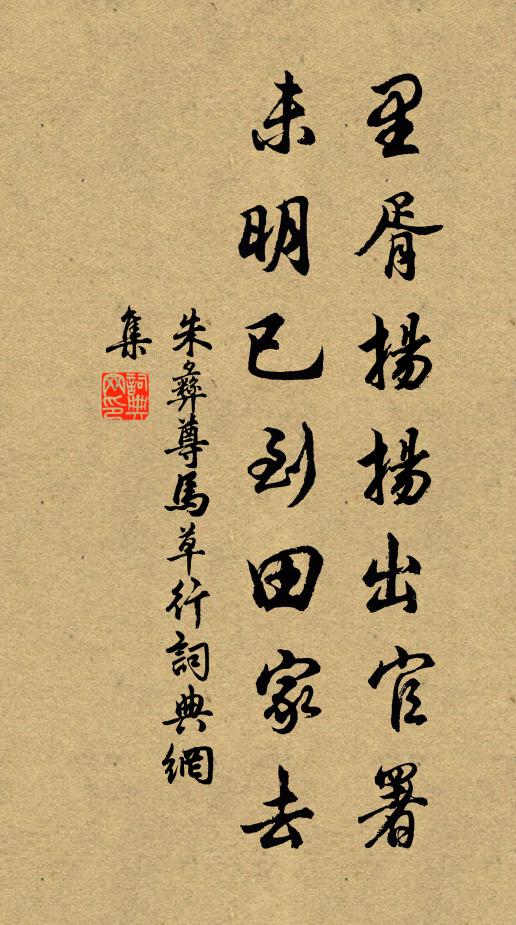 里胥揚揚出官署
未明已到田家去
朱彝尊馬草行詞典網
集
詞典
網印